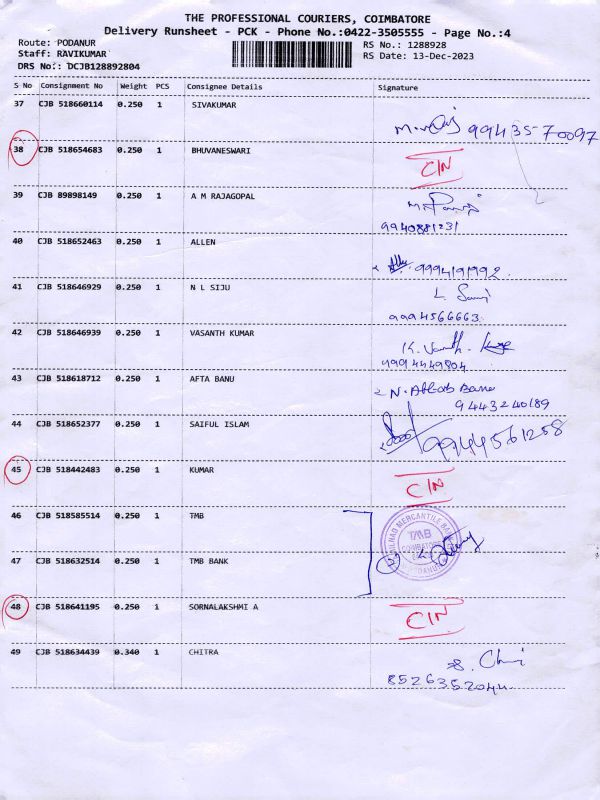 THE PROFESSIONAL COURIERS, COIMBATORE
Delivery Runsheet - PCK - Phone No.:0422-3505555 - Page No.:4
Route: PODANUR
Staff: RAVIKUMAR
DRS No.: DCJB128892804
RS No.: 1288928
RS Date: 13-Dec-2023
S No Consignment No Weight PCS Consignee Details Signature
37 CJB 518660114 0.250 1 SIVAKUMAR
9943570097
38 CJB 518654683 0.250 1 BHUVANESWARI
C/N
39 CJB 89898149 0.250 1 A M RAJAGOPAL
9940881231
40 CJB 518652463 0.250 1 ALLEN
9994191992
41 CJB 518646929 0.250 1 N L SIJU
L
9994566663
42 CJB 518646939 0.250 1 VASANTH KUMAR
K.
9994449804
43 CJB 518618712 0.250 1 AFTA BANU
9443240189
44 CJB 518652377 0.250 1 SAIFUL ISLAM
9944561258
45 CJB 518442483 0.250 1 KUMAR
C/N
46 CJB 518585514 0.250 1 TMB
MERCANTILE BANK
TMB
COIMBATORE
47 CJB 518632514 0.250 1 TMB BANK
48 CJB 518641195 0.250 1 SORNALAKSHMI A
C/N
49 CJB 518634439 0.340 1 CHITRA
8526352044